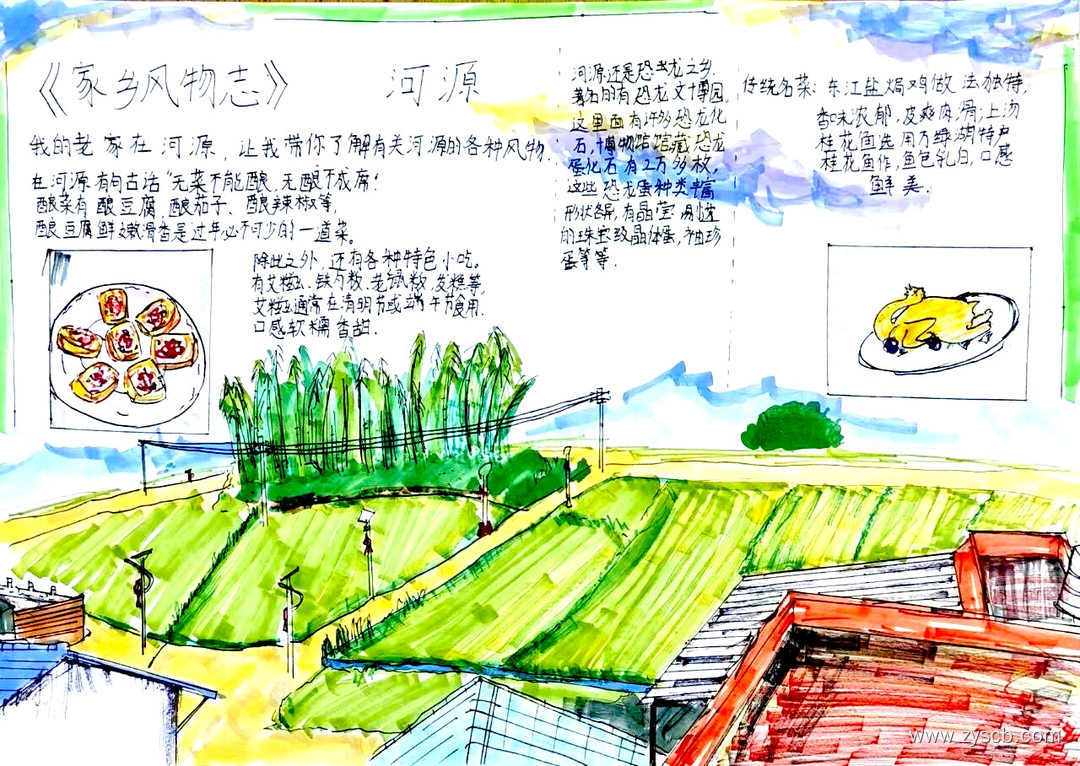 《家乡风物志》 河源
我的老家在河源，让我带你了解有关河源的各种风物.
在河源有句古话“无菜不能酿，无酿不成席”
酿菜有酿豆腐、酿茄子、酿辣椒等，
酿豆腐鲜嫩滑香是过年必不可少的一道菜。
除此之外，还有各种特色小吃。
有艾糍、铁勺粄、老鼠粄、发糕等，
艾糍通常在清明节或端午节食用.
口感软糯香甜.
河源还是恐龙之乡.
著名的有恐龙文博园，
这里面有许多恐龙化
石，博物馆馆藏恐龙
蛋化石有2万多枚，
这些恐龙蛋种类丰富
形状各异，有晶莹剔透
的珠宝级晶体蛋，袖珍
蛋等等.
传统名菜：东江盐焗鸡做法独特，
香味浓郁，皮爽肉滑；上汤
桂花鱼选用万绿湖特产
桂花鱼作，鱼色乳白，口感
鲜美.
www.zyscb.com